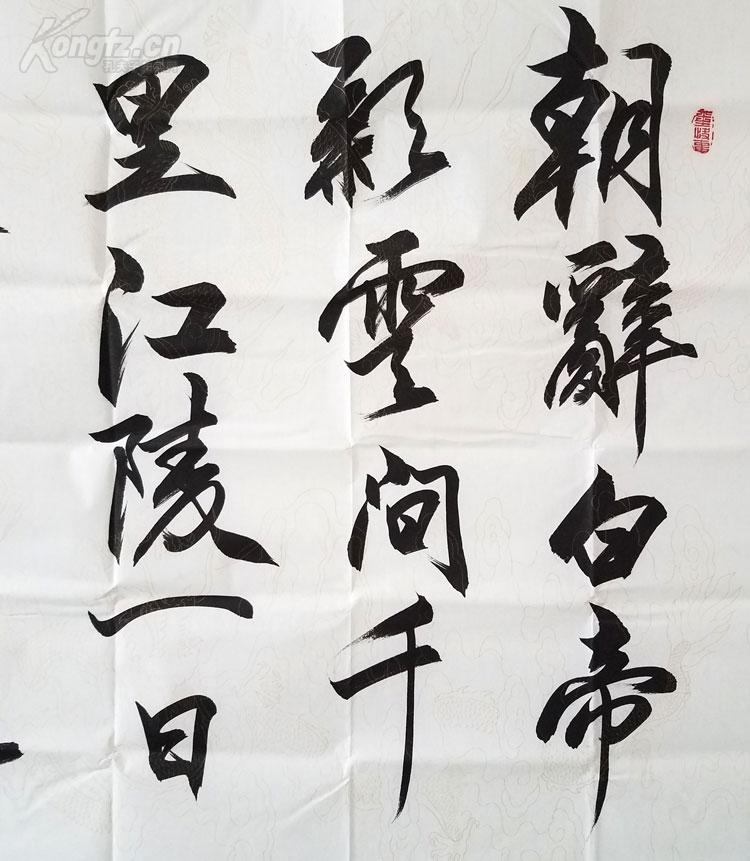 朝辭白帝
彩雲间千
里江陵一日
Kongfz.cn